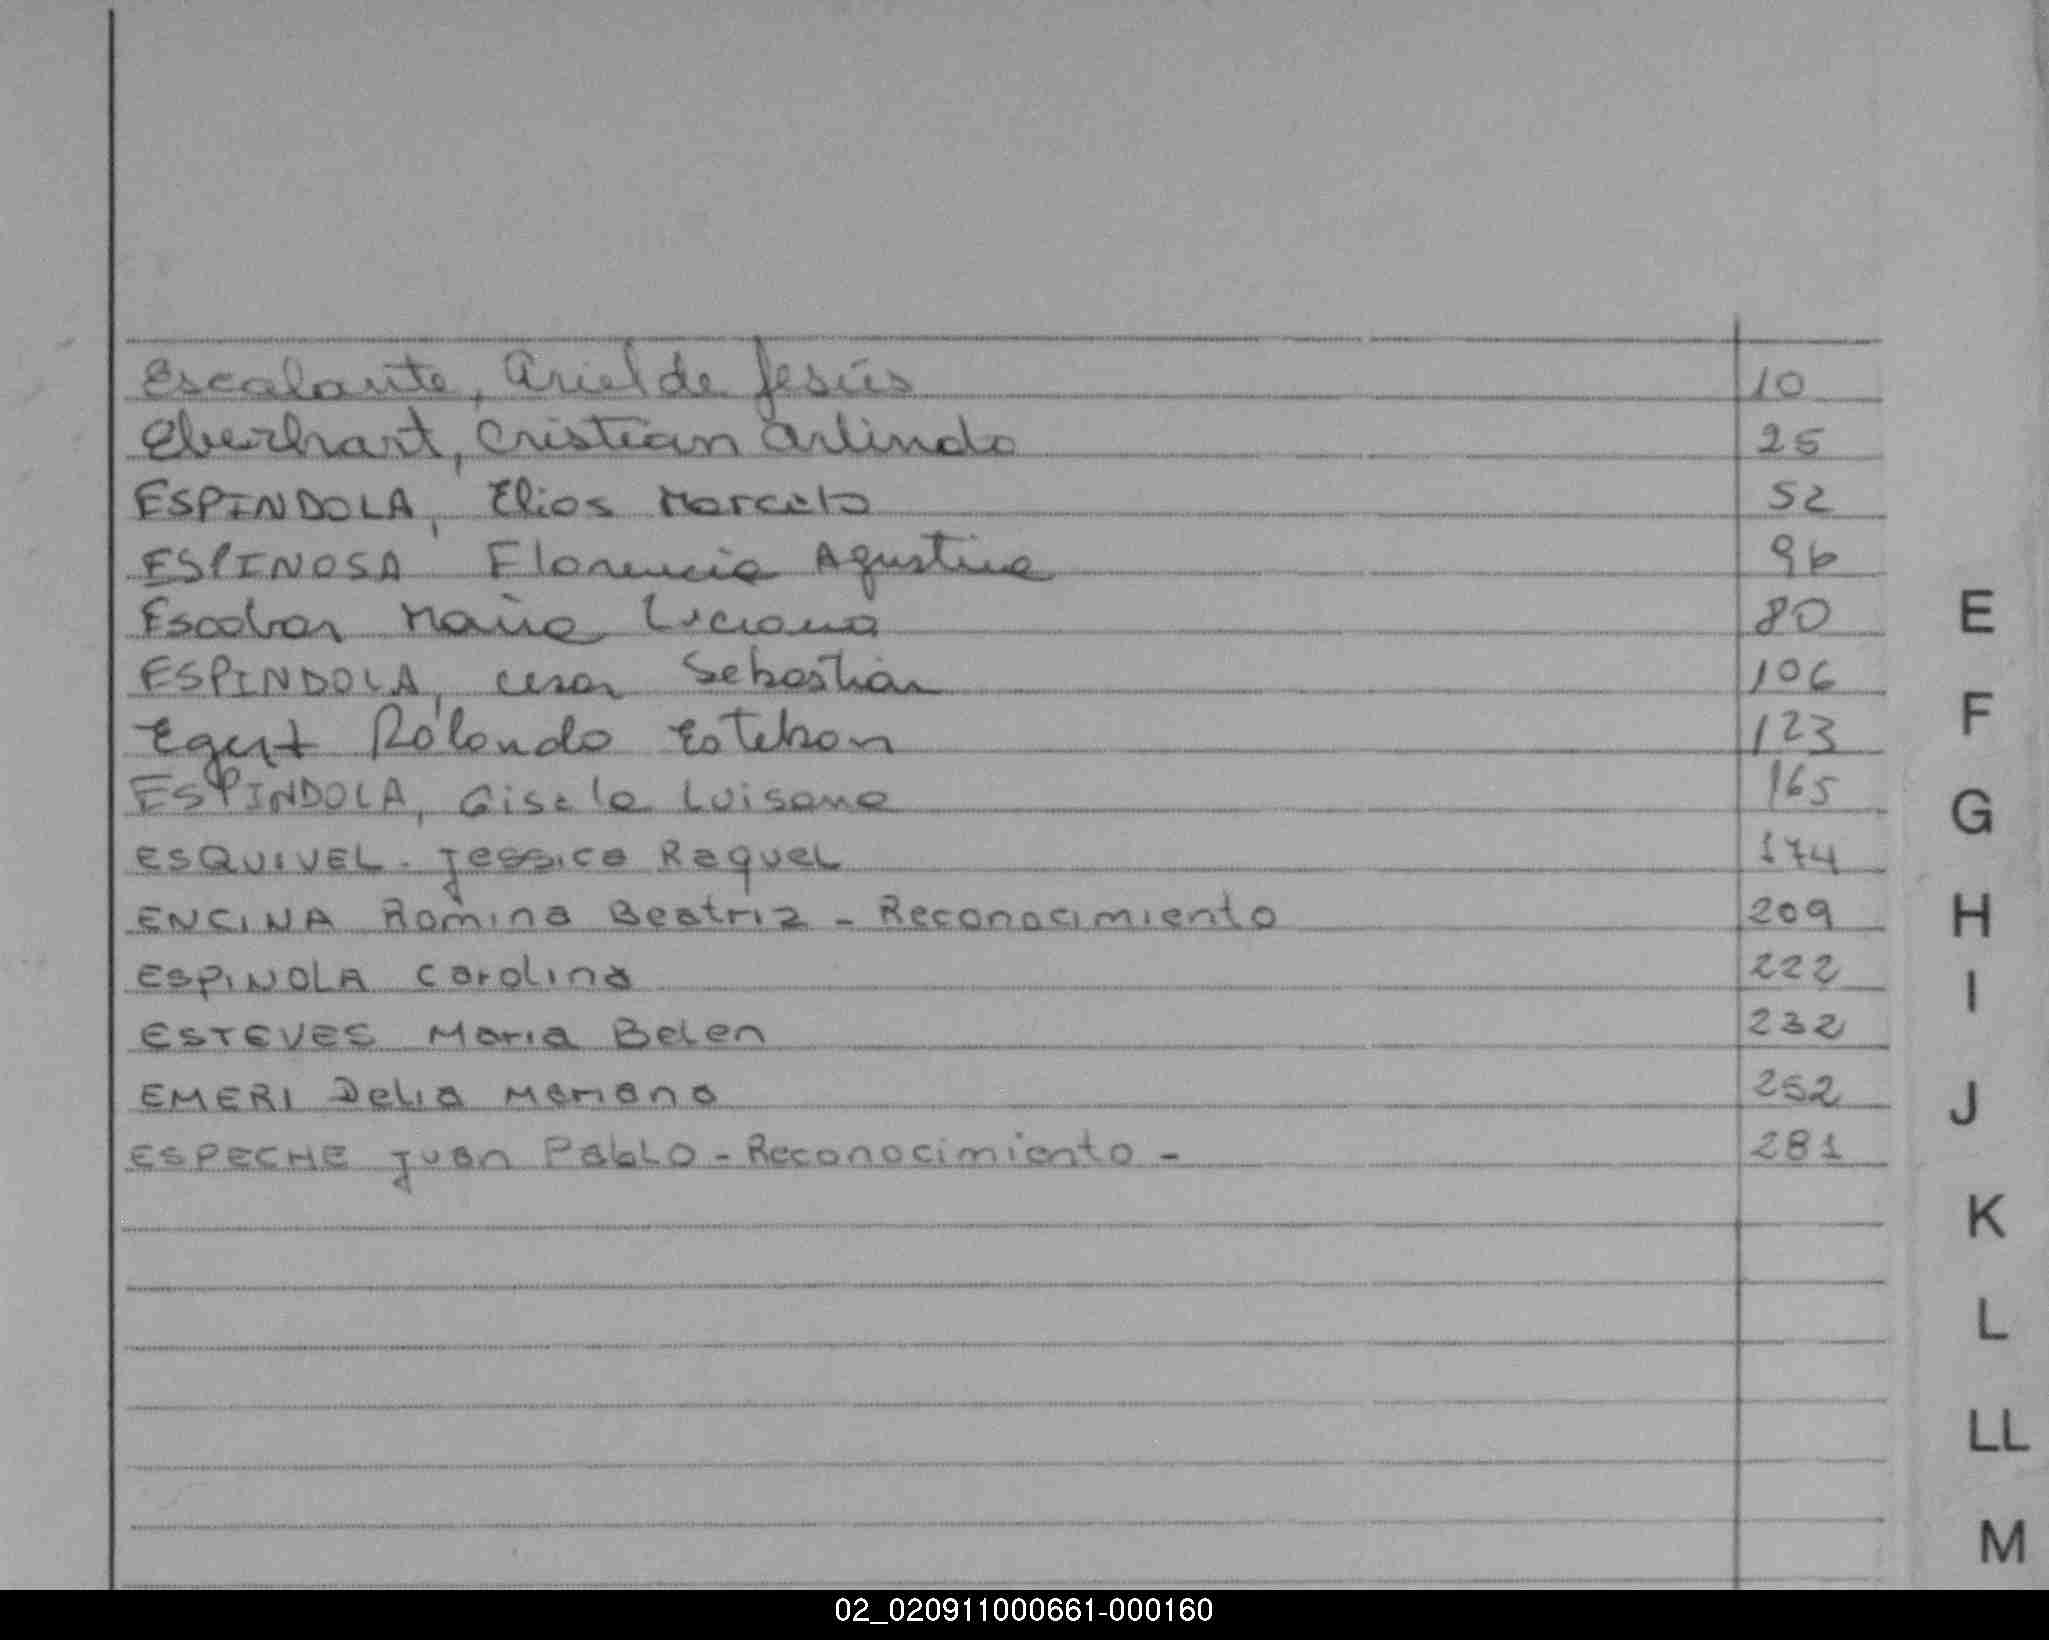 Escalante, Ariel de Jesús 10
Eberhart, Cristian Arlindo 25
ESPINDOLA, Elios Marcelo 52
ESPINOSA Florencia Agustina 96
Escobar María Luciana 80
ESPINDOLA, Cesar Sebastián 106
Egert Rolando Esteban 123
ESPINDOLA, Gisela Luisana 165
ESQUIVEL. Jessica Raquel 174
ENCINA Romina Beatriz - Reconocimiento 209
ESPINOLA Carolina 222
ESTEVES Maria Belen 232
EMERI Delia Mariana 252
ESPECHE Juan Pablo - Reconocimiento - 281
E
F
G
H
I
J
K
L
LL
M
02_020911000661-000160